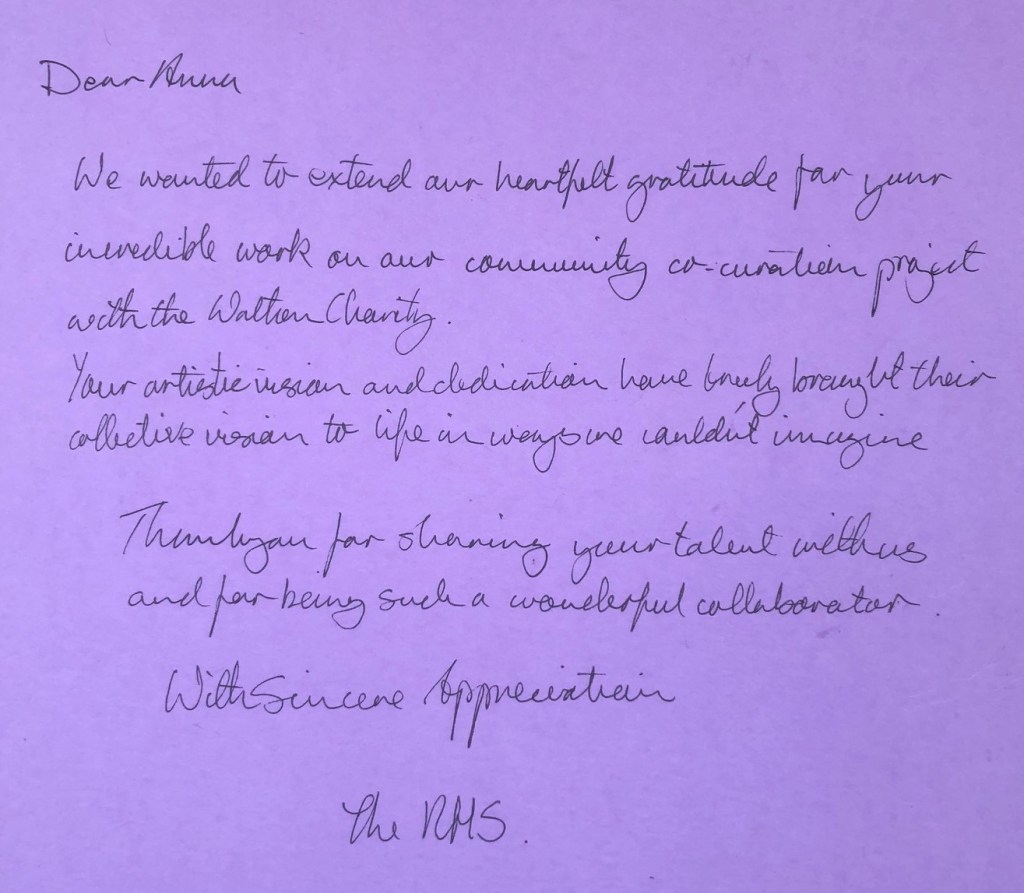 Dear Anna
We wanted to extend our heartfelt gratitude for your
incredible work on our community co-curation project
with the Walton Charity.
Your artistic vision and dedication have truly brought their
collective vision to life in ways we couldn't imagine
Thankyou for sharing your talent with us
and for being such a wonderful collaborator.
With Sincere Appreciation
The RHS.